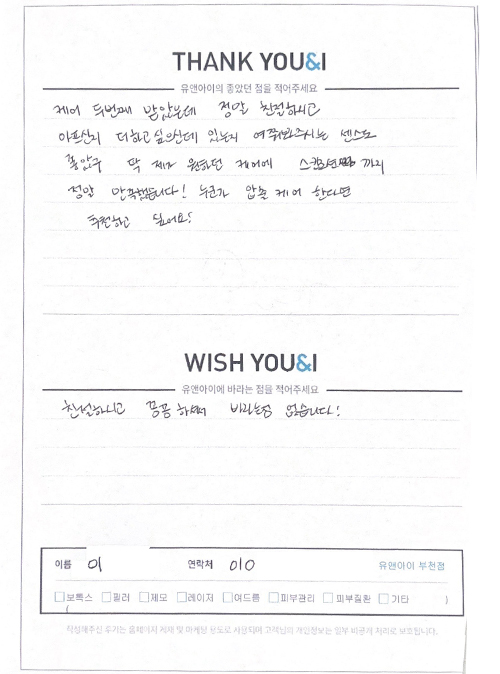 THANK YOU&I
유앤아이의 좋았던 점을 적어주세요
케어 두번째 받았는데 정말 친절하시고
아프신지 더하고 싶으신데 있는지 여쭤봐주시는 센스도
좋았구 딱 제가 원하던 케어에 까지
정말 만족했습니다! 누군가 압출 케어 한다면
추천하고 싶어요!
WISH YOU&I
유앤아이에 바라는 점을 적어주세요
친절하시고 꼼꼼하셔서 바라는점 없습니다!
이름 이 연락처 010 유앤아이 부전점
보톡스 필러 제모 레이저 여드름 피부관리 피부질환 기타
( )
작성해주신 후기는 홈페이지 게재 및 마케팅 용도로 사용되며 고객님의 개인정보는 일부 비공개 처리로 보호됩니다.